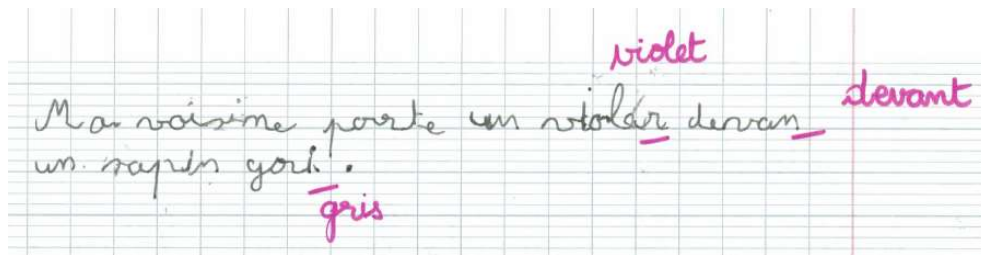 violet
devant
Ma voisine porte un violèr devan
un sapin gri.
gris